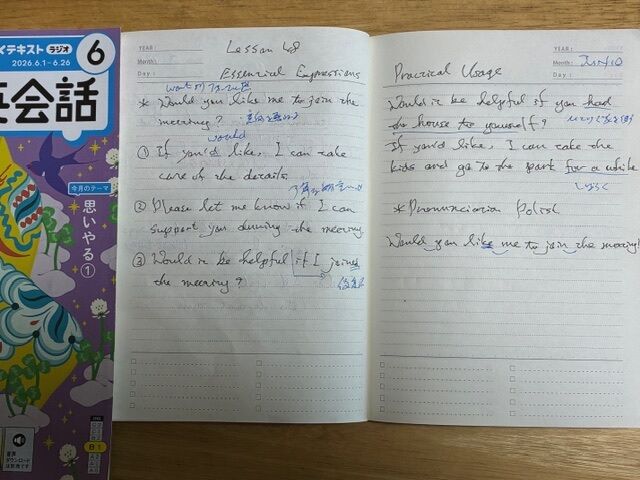 テキスト ラジオ 6
2026.6.1~6.26
英会話
今月のテーマ
思いやる①
音声
ダウンロード
B1
YEAR:
Month:
Day:
Lesson 48
Essential Expressions
* Would you like me to join the
meeting?
would
① If you'd like, I can take
care of the details.
② Please let me know if I can
support you during the meeting.
③ Would it be helpful if I joined
the meeting?
YEAR:
Month:
Day:
Practical Usage
Would it be helpful if you had
the house to yourself?
If you'd like, I can take the
kids and go to the park for a while
しばらく
* Pronunciation Polish
Would you like me to join the meeting?